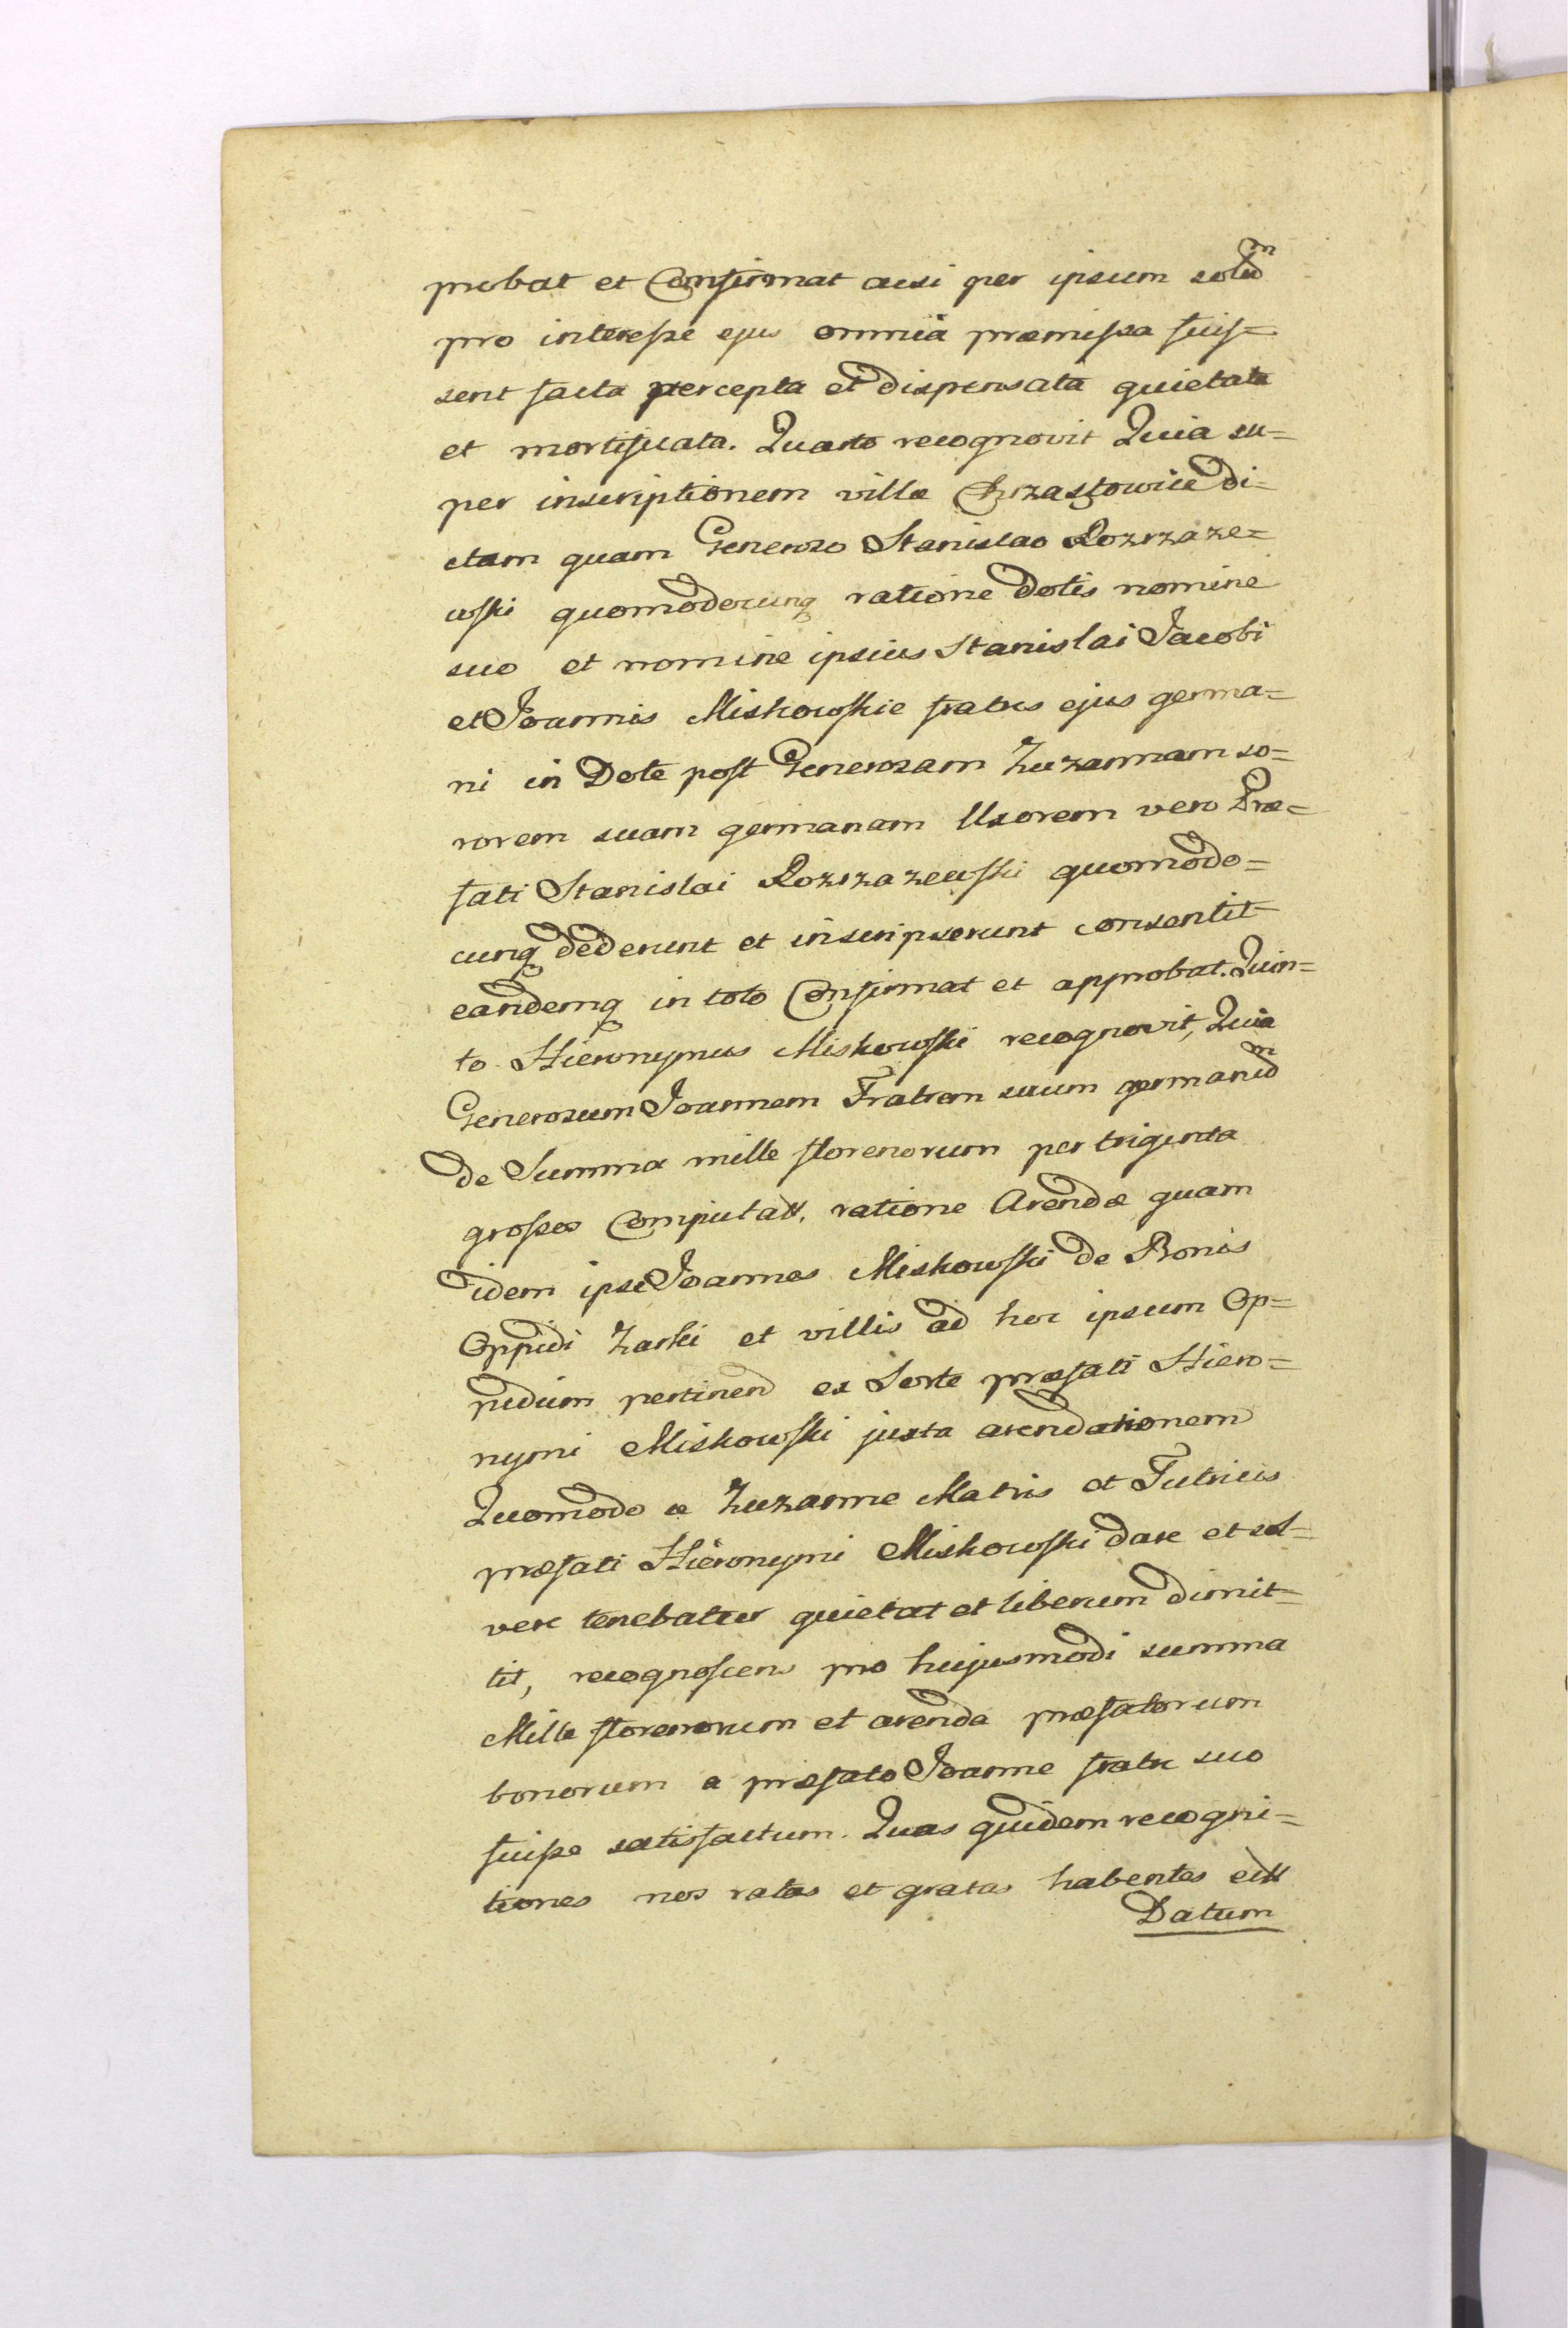 probat et Confirmat acsi per ipsum solũm
pro interesse ejus omnia præmissa fuis=
sent facta percepta et dispensata quietata
et mortificata. Quarto recognovit Quia su=
per inscriptionem villæ Chrzastowice di=
ctam quam Generoso Stanislao Rozrzaze=
wski quomodocunq ratione Dotis nomine
suo et nomine ipsius Stanislai Jacobi
et Joannis Miskowskie fratris ejus germa=
ni in Dote post Generosam Zuzannam so=
rorem suam germanam Uxorem vero Præ=
fati Stanislai Rozrzazewski quomodo=
cunq dederunt et inscripserunt consentit
eandemq in toto Confirmat et approbat. Quin=
to Hieronymus Miskowski recognovit, Quia
Generosum Joannem Fratrem suum germanũm
de Summa mille florenorum per triginta
grossos Computatt. ratione Arendæ quam
idem ipse Joannes Miskowski de Bonis
Oppidi Zarki et villis ad hoc ipsum Op=
pidum pertinend ex Sorte præfati Hiero=
nymi Miskowski juxta arendationem
Quomodo a Zuzanne Matris et Tutricis
præfati Hieronymi Miskowski dare et sol=
vere tenebatur quietat et liberum dimit=
tit, recognoscens pro hujusmodi summa
Mille florenorum et arenda præfatorum
bonorum a præfato Joanne fratre suo
fuisse satisfactum. Quas quidem recogni=
tiones nos ratas et gratas habentes ett
Datum